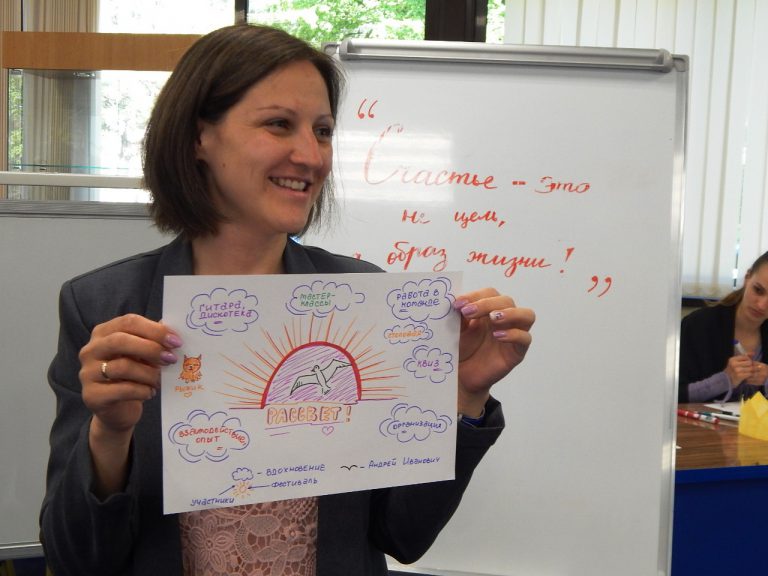 “
Счастье -- это
не цель,
а образ жизни!
”
гитара,
дискотека
мастер-
классы
работа в
команде
столовая
квиз
Рыжик
РАССВЕТ!
взаимодействие,
опыт
организация
- вдохновение
- фестиваль
участники
- Андрей Иванович